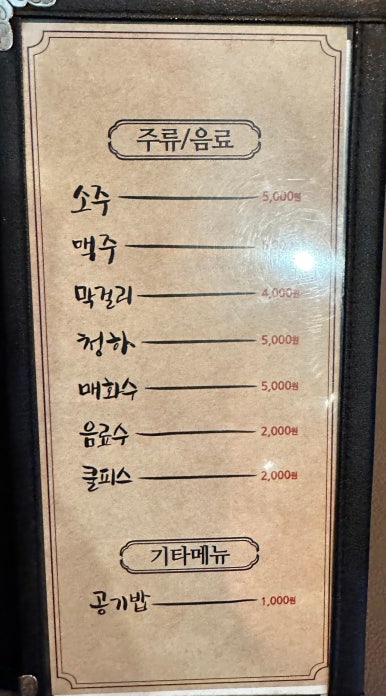 주류/음료
소주 5,000원
맥주
막걸리 4,000원
청하 5,000원
매화수 5,000원
음료수 2,000원
쿨피스 2,000원
기타메뉴
공기밥 1,000원